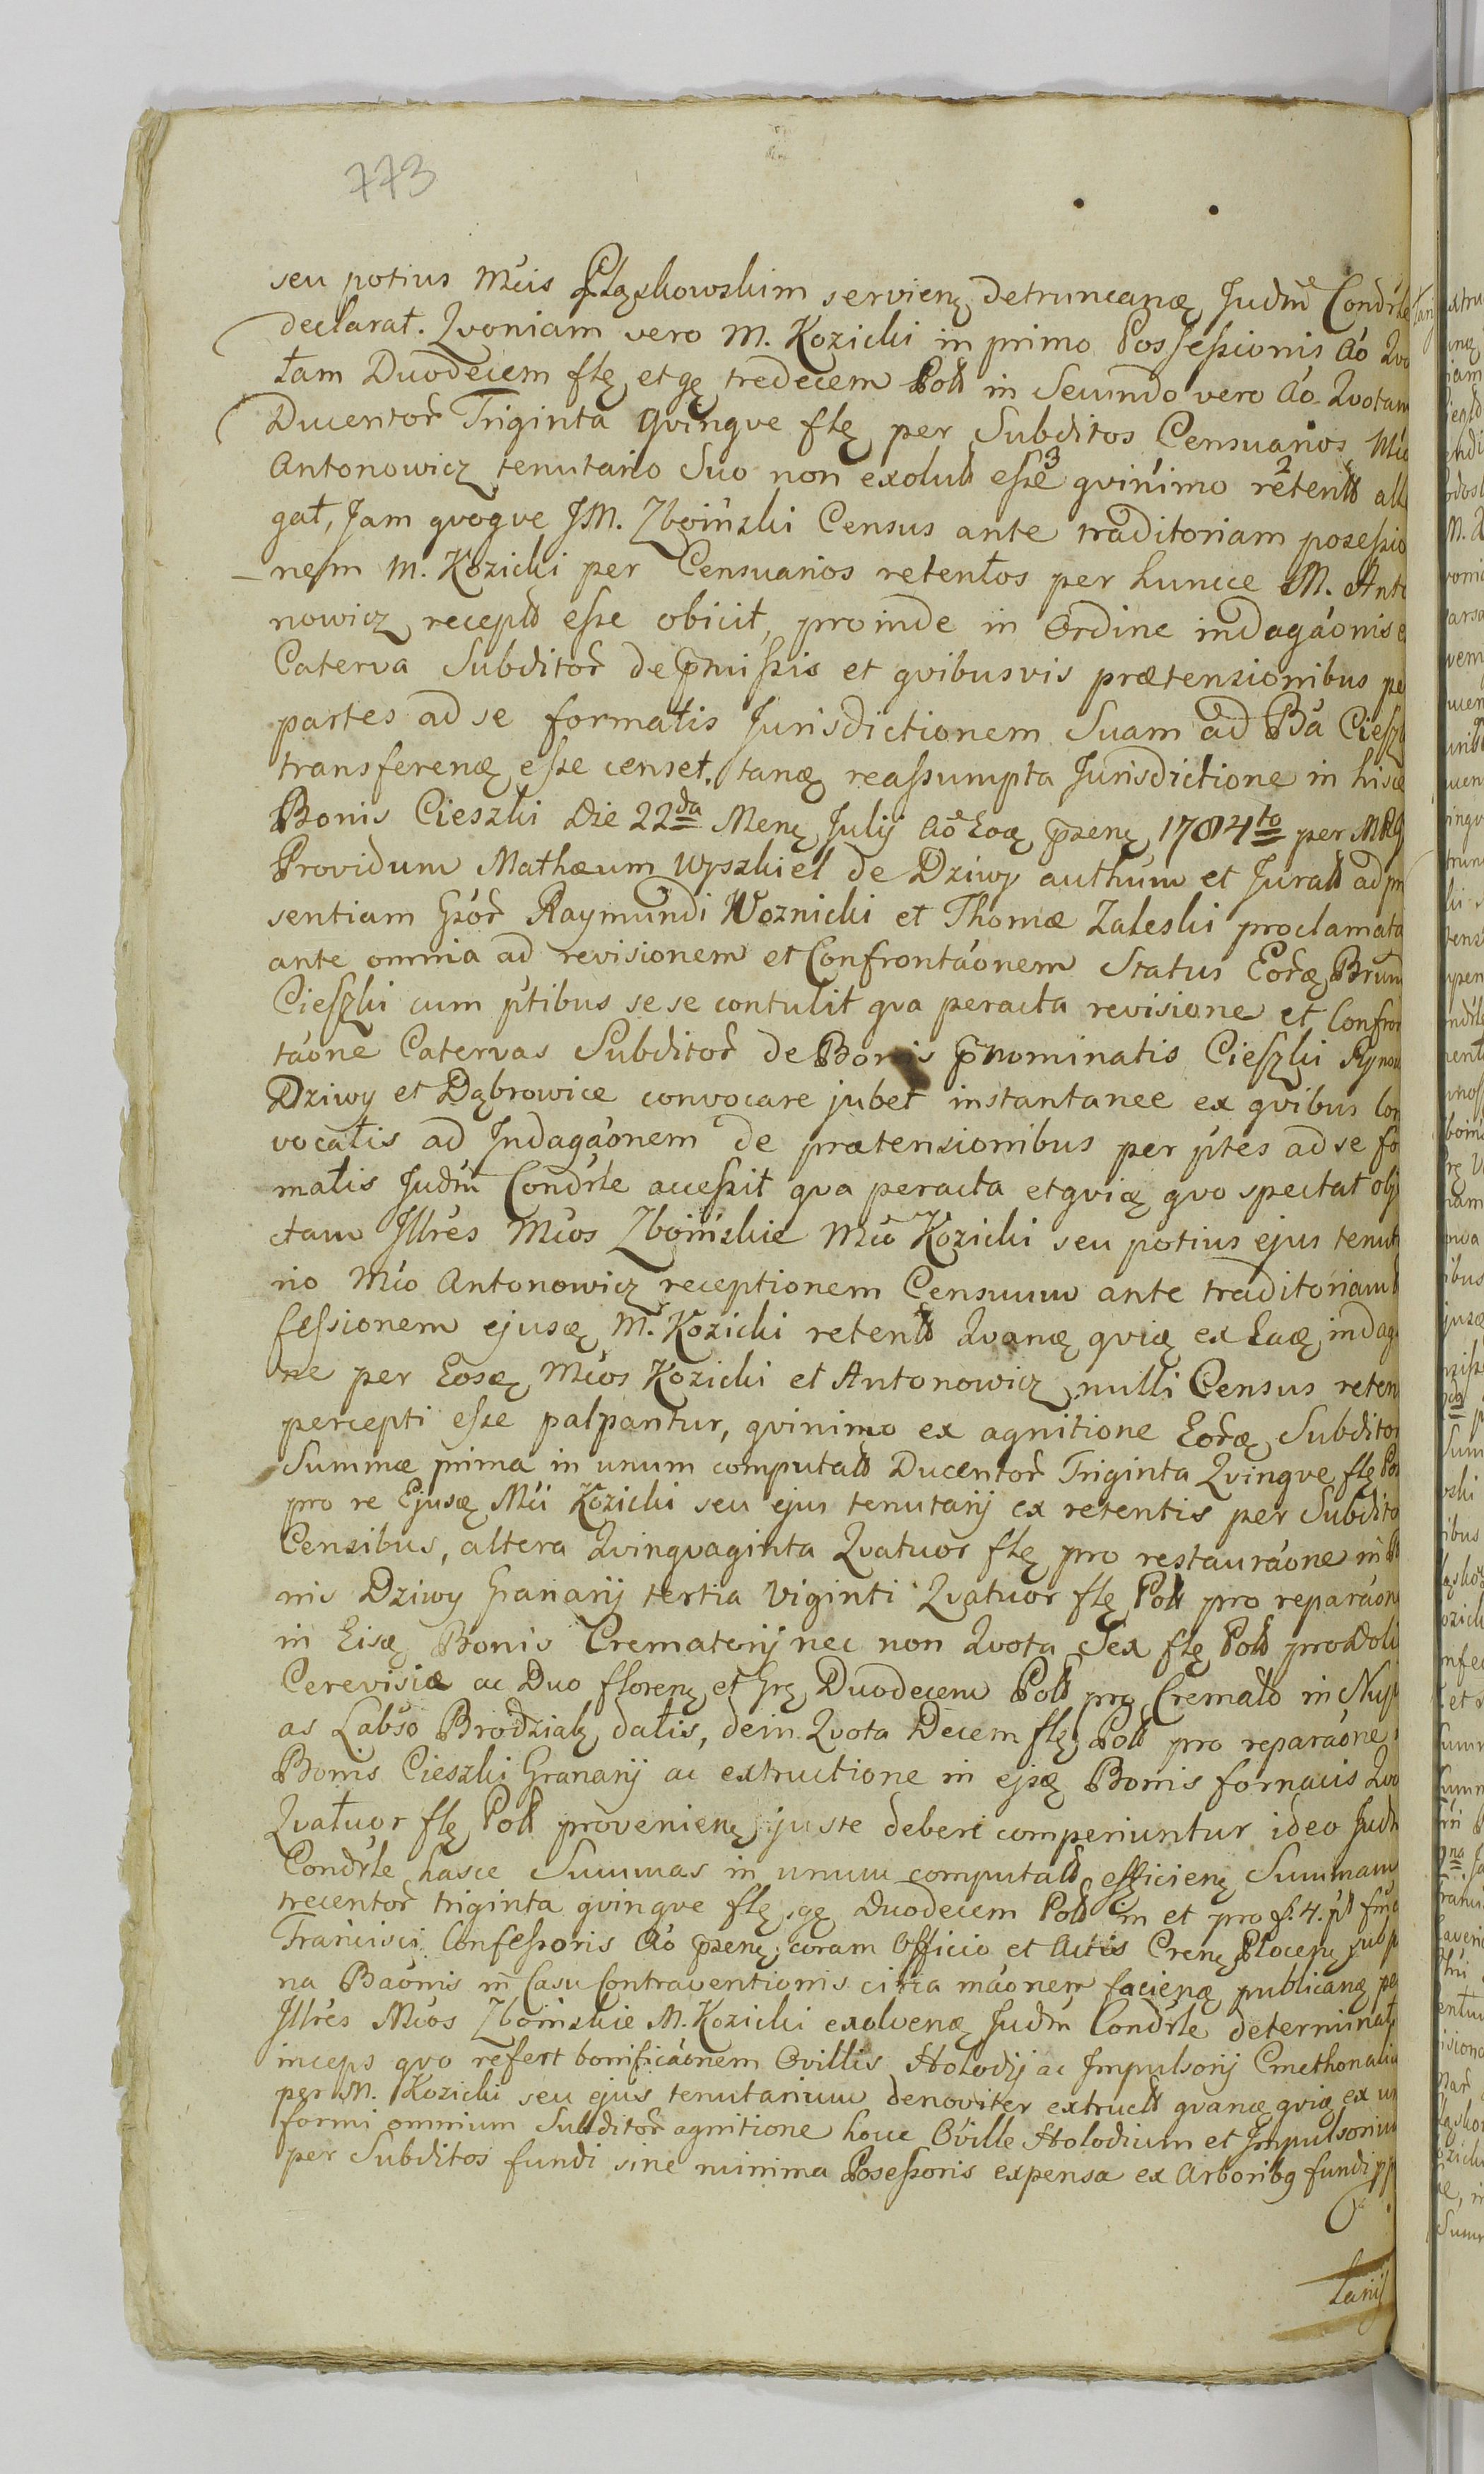 773
seu potius Mcis Płąskowskim servienę detruncanę Judm Condrle
declarat. Qvoniam vero M. Kozicki in primo Possessionis Ao Qvo
tam Duodecem flę et gę tredecem Poll in Secundo vero Ao Qvotam
Ducentor Triginta Qvinqve flę per Subditos Censuarios Mco
Antonowicz tenutario Suo non exolut esse 3 qvinimo 2 retent alle
gat, Jam qvoqve JM. Zboinski Census ante traditoriam posessio
nem M. Kozicki per Censuarios retentos per huncce M. Anto
nowicz recept esse obicit, proinde in Ordine indagaonis e
Caterva Subditor de pmissis et qvibusvis prætensionibus pe
partes ad se formatis Jurisdictionem Suam ad Ba Ciesz
transferenę esse censet. tanę reassumpta Jurisdictione in hisce
Bonis Cieszki die 22da Menę Julij Ao Eoę psenę 1784to per
Providum Mathæum Wyszkiel de Dziwy authum et Jurat ad præ
sentiam Gsor Raymundi Woznicki et Thomæ Zaleski proclamata
ante omnia ad revisionem et Confrontaonem Status Eorę Brum
Cieszki cum ptibus se se contulit qva peracta revisione et Confron
taone Catervas Subditor de Bonis pnominatis Cieszki Rynow
Dziwy et Dąbrowice convocare jubet instantanee ex qvibus con
vocatis ad Indagaonem de prætensionibus per ptes ad se fo
matis Judm Condrle accessit qva peracta et qvię qvo spectat obje
ctam Jllres Mcos Zboinskie Mco Kozicki seu potius ejus tenuta
rio Mco Antonowicz receptionem Censuum ante traditoriam
sessionem ejusę M. Kozicki retent Qvanę qvię ex Eaę indaga
ne per Eosę Mcos Kozicki et Antonowicz nulli Census reten
percepti esse palpantur, qvinimo ex agnitione Eorę Subditor
Summæ prima in unum computat Ducentor Triginta Qvinqve flę Pol
pro re Ejusę Mci Kozicki seu ejus tenutarij ex retentis per Subdito
Censibus, altera Qvinqvaginta Qvatuor flę pro restauraone in Bo
nis Dziwy Granarij tertia Viginti Qvatuor flę Poll pro reparaone
in Eisę Bonis Crematorij nec non Qvota Sex flę Poll pro Doli
Cerevisiæ ac Duo florenę et Grę Duodecem Poll pro Cremato in Nup
as Labso Brodziak datis, dein Qvota Decem flę Poll pro reparaone
Bonis Cieszki Granarij ac extructione in ejsę Bonis fornacis Qvo
Qvatuor flę Poll provenienę juste deberi comperiuntur ideo Judm
Condrle hasce Summas in unum computat efficienę Summam
trecentor triginta qvinqve flę gę Duodecem Poll in et pro f. 4. pt
Francisci Confessoris Ao psenę coram Officio et Actis Crenę Plocenę sub p
na Baonis in Casu Contraventionis citra maonem facienę publicanę per
Jllres Mcos Zboinskie M. Kozicki exolvenę Judm Condrle determinat
inceps qvo refert bonificaonem Ovillis Holodij ac Impulsorij Cmethonalis
per M. Kozicki seu ejus tenutarium denoviter extruct qvanę qvię ex un
formi omnium Subditor agnitione hocce Oville Holodium et Impulsorium
per Subditos fundi sine minima Posessoris expensa ex Arboribg fundi